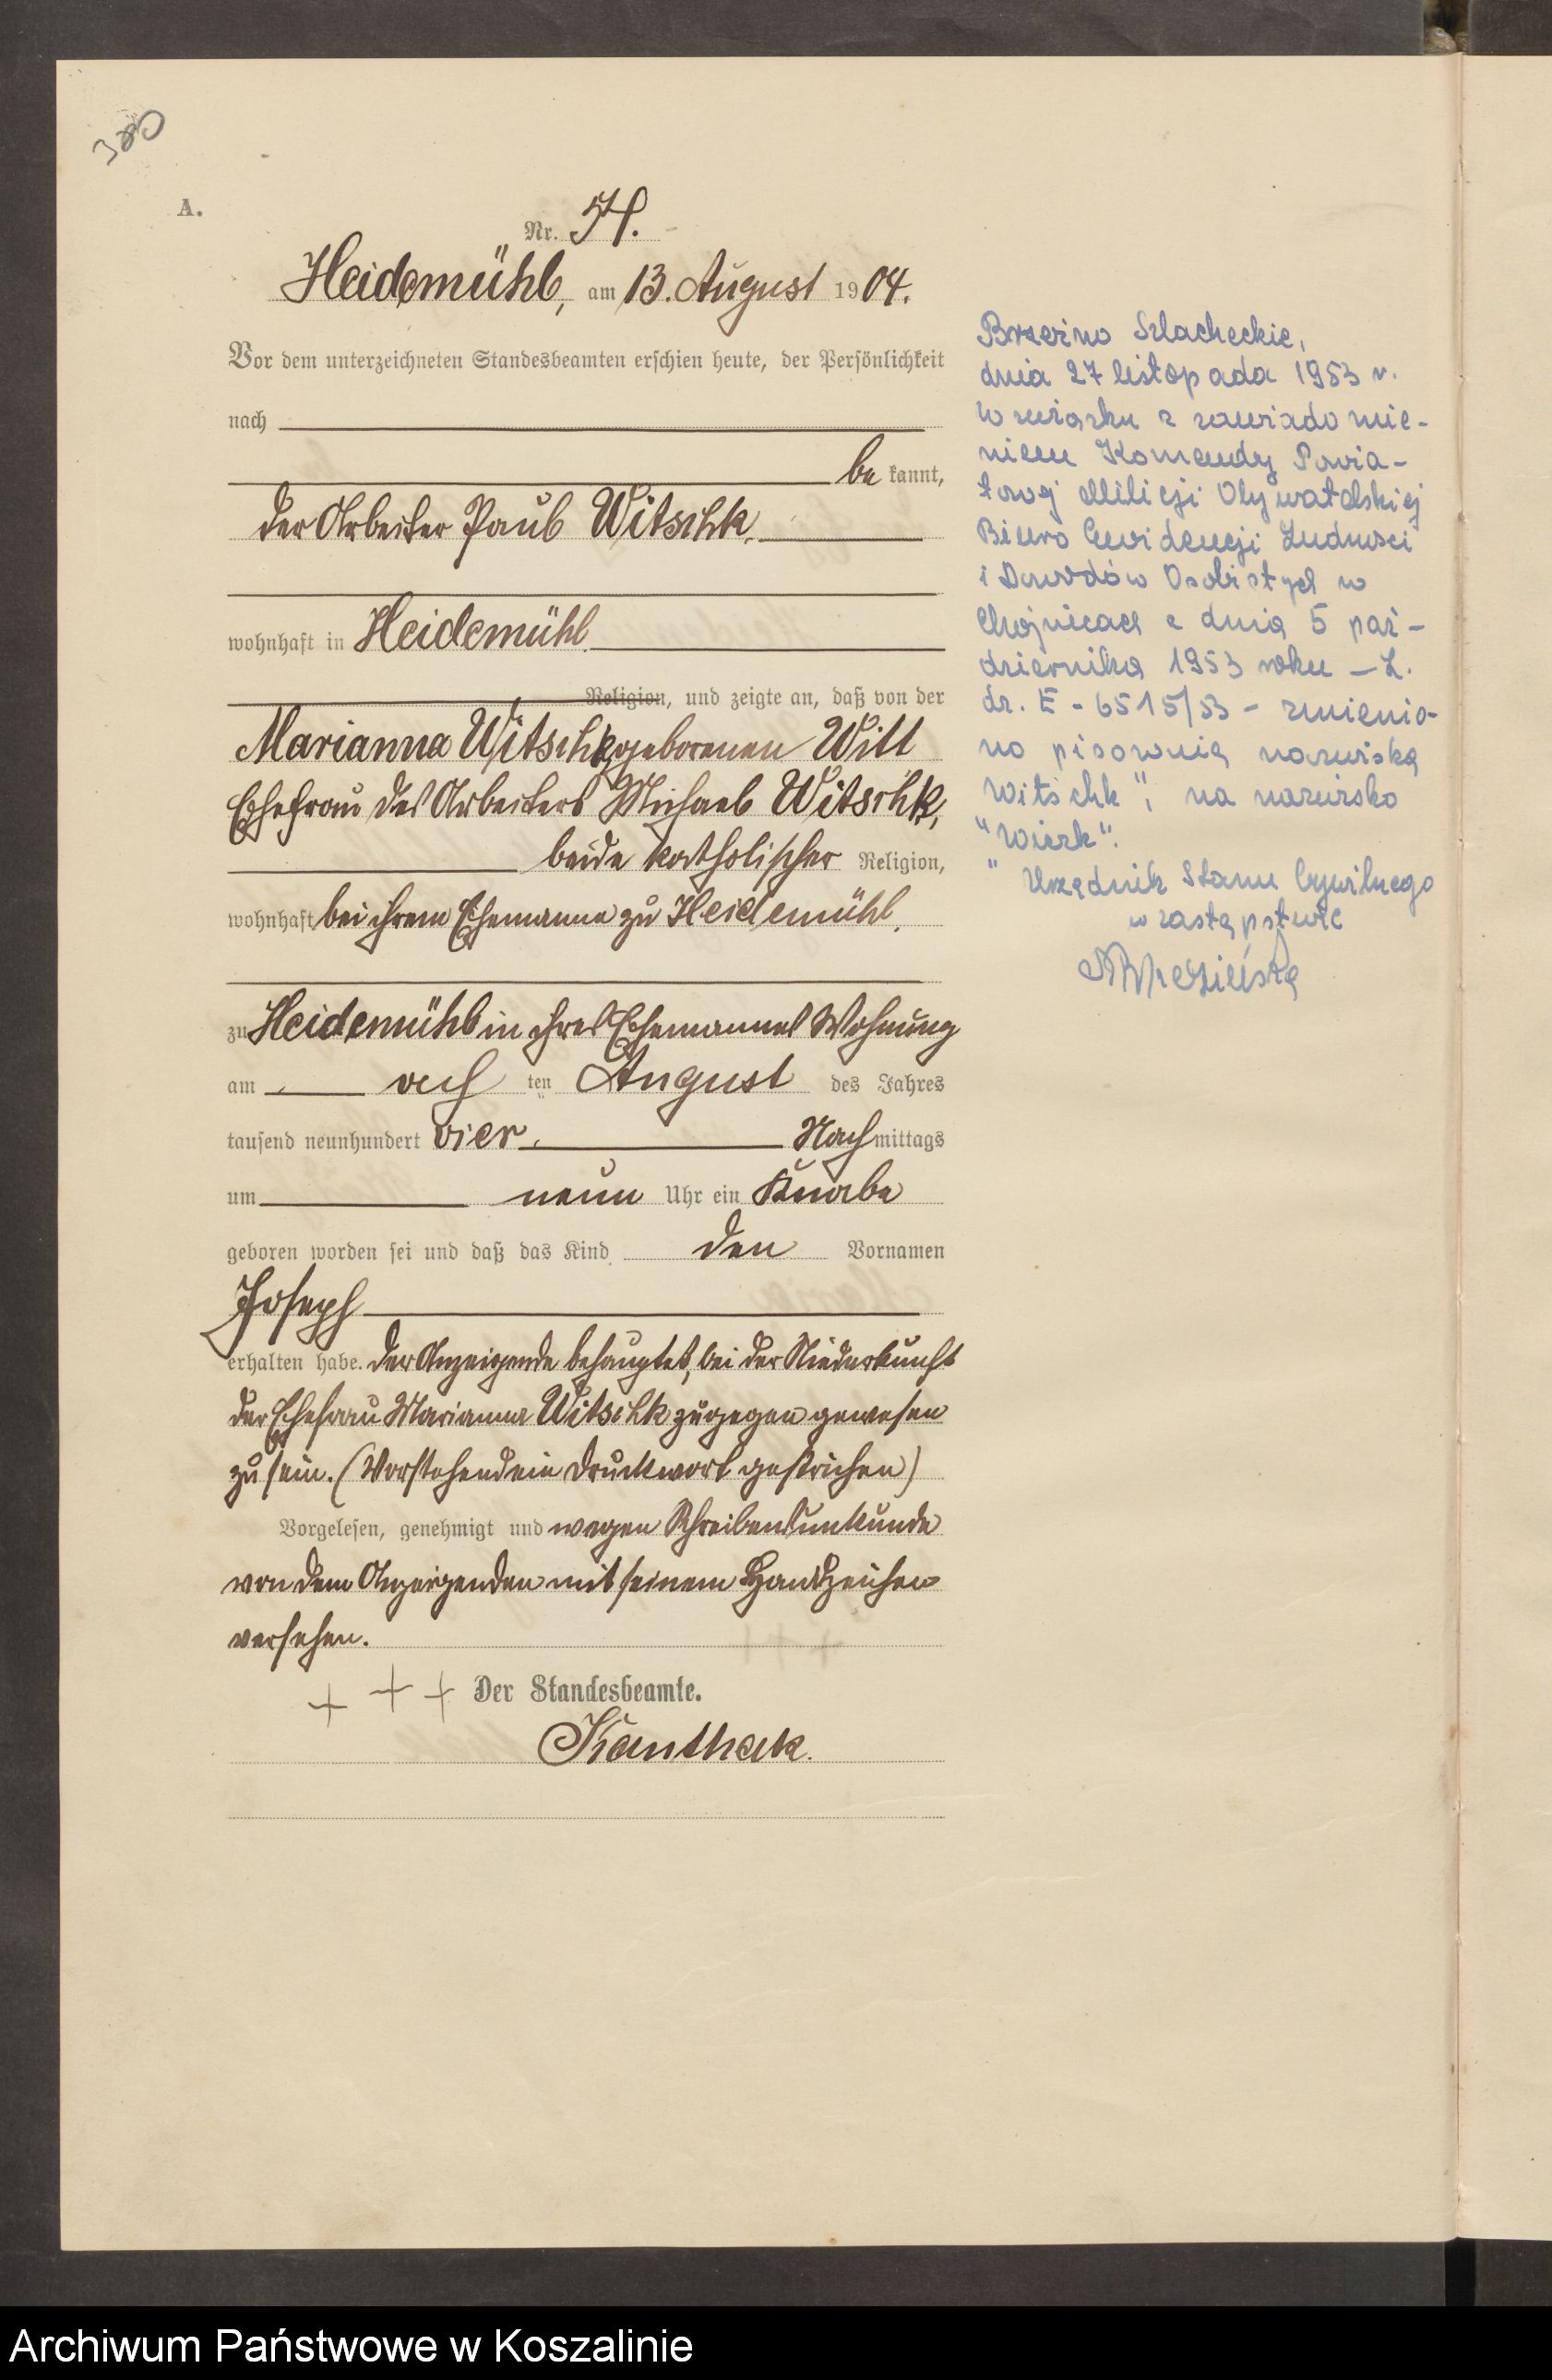 380
A.
Nr. 54.
Heidemühl, am 13. August 1904.
Vor dem unterzeichneten Standesbeamten erschien heute, der Persönlichkeit
nach
be kannt,
der Arbeiter Paul Witschk,
wohnhaft in Heidemühl.
Religion, und zeigte an, daß von der
Marianna Witschk, geborenen Witt
Ehefrau des Arbeiters Michael Witschk,
beide katholischer Religion,
wohnhaft bei ihrem Ehemanne zu Heidemühl,
zu Heidemühl in ihres Ehemannes Wohnung
am acht ten August des Jahres
tausend neunhundert vier, Nach mittags
um neun Uhr ein Knabe
geboren worden sei und daß das Kind den Vornamen
Joseph
erhalten habe. Der Anzeigende behauptet, bei der Niederkunft
der Ehefrau Marianna Witschk zugegen gewesen
zu sein. (Vorstehend ein Druckwort gestrichen)
Vorgelesen, genehmigt und wegen Schreibensunkunde
von dem Anzeigenden mit seinem Handzeichen
versehen.
+ + + Der Standesbeamte.
Kanthak.
Brzeźno Szlacheckie,
dnia 27 listopada 1953 r.
W związku z zawiadomie-
niem Komendy Powia-
towej Milicji Obywatelskiej
Biuro Ewidencji Ludności
i Dowodów Osobistych w
Chojnicach z dnia 5 paź-
dziernika 1953 roku – L.
dz. E - 6515/53 - zmienio-
no pisownię nazwiska
Witschk", na nazwisko
"Wiczk".
" Urzędnik Stanu Cywilnego
w zastępstwie
Archiwum Państwowe w Koszalinie